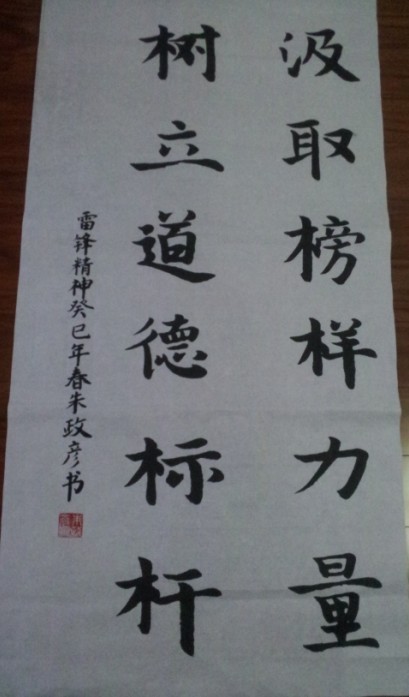 汲取榜样力量
树立道德标杆
雷锋精神癸巳年春朱政彦书